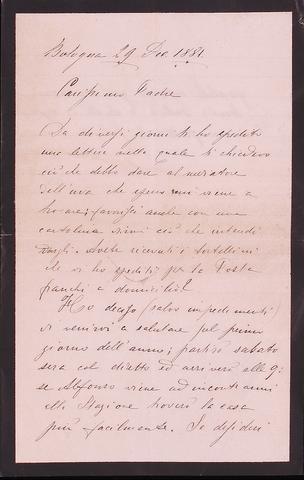 Bologna 29 Dic 1881.
Carissimo Padre
Da diversi giorni ti ho spedito
una lettera nella quale ti chiedevo
ciò che debbo dare al
dell'uva che ogni viene a
trovarmi; favorisci anche con una
cartolina ciò che intendi
dargli. Avete ricevuti i tortellini
che vi ho spediti per le Feste
franchi a domicilio?
Ho deciso (salvo impedimenti)
di venirvi a salutare pel primo
giorno dell'anno; partirò sabato
sera col diretto ed arriverò alle 9:
se Alfonso viene ad incontrarmi
alla Stazione troverò la casa
più facilmente. Io desideri